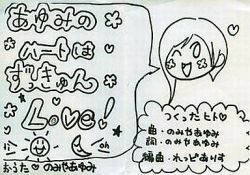 あゆみの
ハートは
ずっきゅん
Love!
oh
おうた♡のみやあゆみ
つくったヒト♡
曲・のみやあゆみ
詞・のみやあゆみ
編曲・れっぴありす